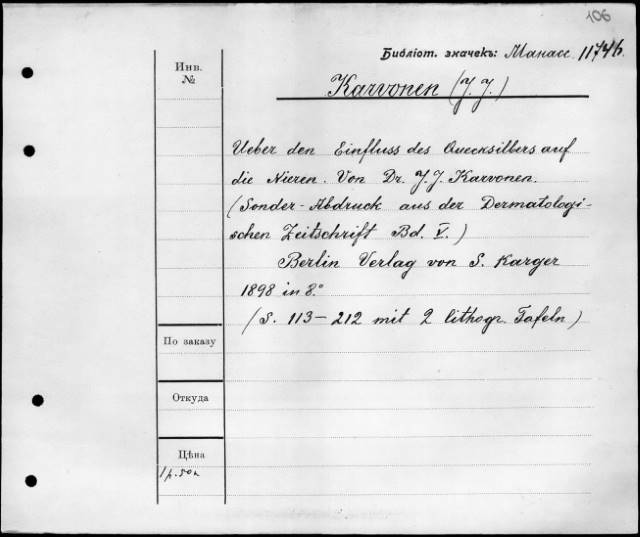 106
Библіот. значекъ: Манасс. 11746.
Инв.
№
Karvonen (J. J.)
Ueber den Einfluss des Quecksilbers auf
die Nieren. Von Dr. J. J. Karvonen.
(Sonder-Abdruck aus der Dermatologi-
schen Zeitschrift Bd. V.)
Berlin Verlag von S. Karger
1898 in 8.°
(S. 113-212 mit 2 lithogr. Tafeln)
По заказу
Откуда
Цѣна
1 р. 50 к